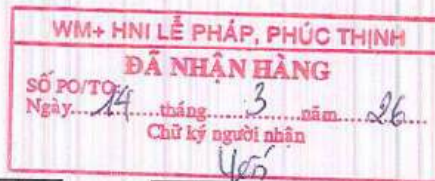 WM+ HNI LỄ PHÁP, PHÚC THỊNH
ĐÃ NHẬN HÀNG
SỐ PO/TO:
Ngày...14...tháng...3...năm...26...
Chữ ký người nhận